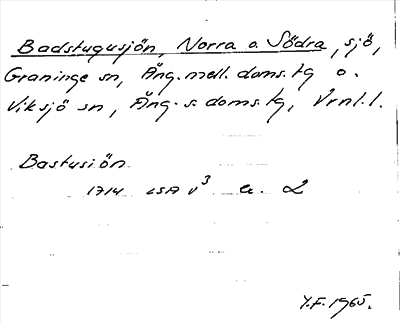 Badstugusjön, Norra o. Södra, sjö,
Graninge sn, Ång. mell. doms. tg o.
Viksjö sn, Ång. s. doms. tg, Vrnl. l.
Bastusiön
1714 LSA V³ a. 2
Y.F. 1965.